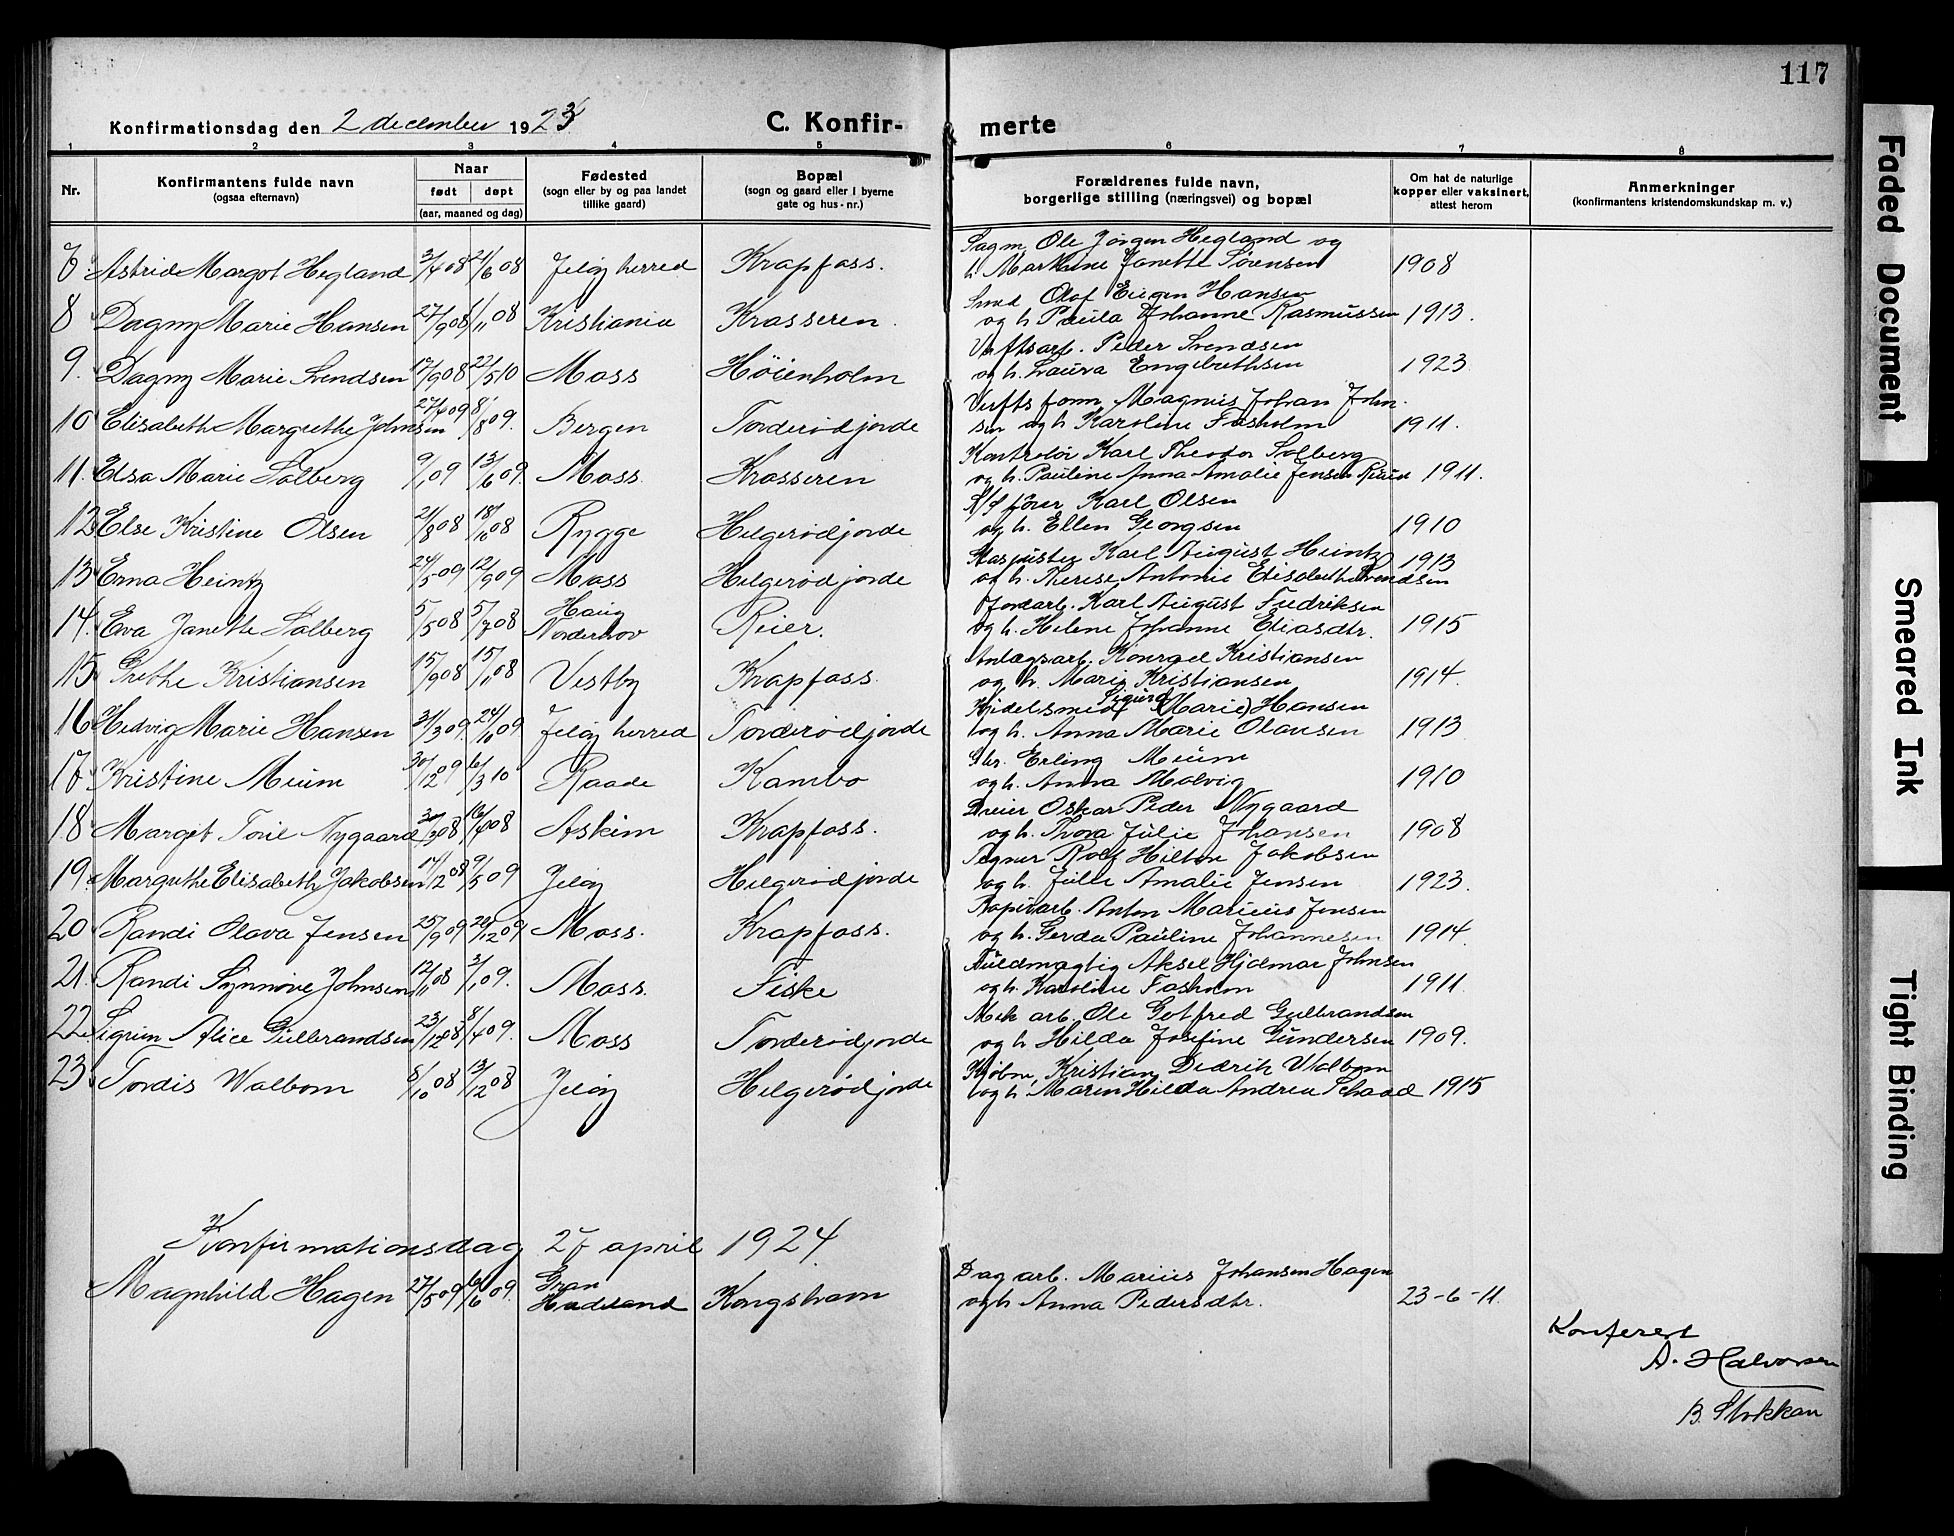 117
Konfirmationsdag den 2 december 1923 C. Konfir- merte
1 2 3 4 5 6 7 8
Nr. Konfirmantens fulde navn (ogsaa efternavn) Naar født døpt (aar, maaned og dag) Fødested (sogn eller by og paa landet tillike gaard) Bopæl (sogn og gaard eller i byerne gate og hus-nr.) Forældrenes fulde navn, borgerlige stilling (næringsvei) og bopæl Om hat de naturlige kopper eller vaksinert, attest herom Anmerkninger (konfirmantens kristendomskundskap m. v.)
7 Astrid Margot Hegland 3/4 08 21/6 08 Jeløy herred Krapfoss. Sagm. Ole Jørgen Hegland og h. Martine Janette Sørensen 1908
8 Dagny Marie Hansen 27/9 08 1/11 08 Kristiania Krasseren. Smed Olof Eugen Hansen og h. Paula Johanne Rasmussen 1913.
9. Dagny Marie Svendsen 17/9 08 22/5 10 Moss Høienholm Verftsarb. Peder Svendsen og h. Laura Engebrethsen 1923
10 Elisabeth Margrethe Johnsen 27/4 09 8/8 09. Bergen Torderødjorde Verfts form. Magnus Johan Johnsen og h. Karoline Fasholm 1911.
11. Elsa Marie Solberg 9/1 09 13/6 09 Moss Krosseren Kontrolør Karl Theodor Solberg og h. Pauline Anna Amalie Jensen Ruud 1911.
12 Else Kristine Olsen 21/8 08 18/10 08 Rygge Helgerødjorde fører Karl Olsen og h. Ellen Georgsen 1910
13 Erna Heintz 24/5 09 12/9 09 Moss Helgerødjorde Karl August Heintz og h. Therese Antonie Elisabeth Svendsen 1913
14. Eva Janette Solberg 5/5 08 5/7 08 Haug Norderhov Reier. Jordarb. Karl August Fredriksen og h. Helene Johanne Eliasdtr. 1915
15 Grethe Kristiansen 15/9 08 15/11 08 Vestby Krapfoss Anlægsarb. Konrad Kristiansen og h. Marie Kristiansen 1914.
16 Hedvig Marie Hansen 31/3 09 24/10 09 Jeløy herred Torderødjorde Kjedelsmed Sigurd (Marie) Hansen og h. Anna Marie Olausen 1913
17 Kristine Meum 30/12 09 6/3 10 Raade Kambo Erling Meum og h. Anna Molvig 1910
18 Marget Toril Nygaard 08 16/4 08 Askim Krapfoss. Dreier Oskar Peder Nygaard og h. Thora Julie Johansen 1908
19. Margrethe Elisabeth Jakobsen 17/12 08 9/5 09 Jeløy Helgerødjorde Tegner Rolf Hilton Jakobsen og h. Julie Amalie Jensen 1923.
20 Randi Olava Jensen 25/9 09 26/12 09 Moss. Krapfoss. Papirarb. Anton Marius Jensen og h. Gerda Pauline Johannesen 1914.
21. Randi Synnøve Johnsen 12/11 08 3/1 09. Moss. Fiske Fuldmægtig Aksel Hjalmar Johnsen og h. Karoline Fasholm 1911
22 Sigrun Alice Gulbrandsen 23/12 08 8/4 09. Moss Torderødjorde Mek arb. Ole Gotfred Gulbrandsen og h. Hilda Josefine Gundersen 1909.
23 Tordis Walbom 8/10 08 13/12 08 Jeløy Helgerødjorde Kjøbm. Kristian Didrik Walbom og h. Maren Hilda Andrea Schaad 1915
Konfirmationsdag 27 april 1924
Magnhild Hagen 27/5 09 6/6 09. Gran Hadeland Kongshavn Dag arb. Marius Johansen Hagen og h Anna Pedersdtr. 23-6-11.
Konferert
A. Halvorsen
B. Stokkan
Faded Document
Smeared Ink
Tight Binding